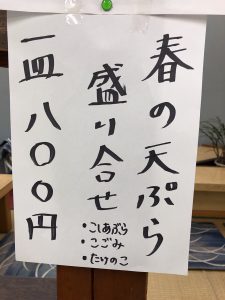 春の天ぷら
盛り合せ
・こしあぶら
・こごみ
・たけのこ
一皿 八〇〇円